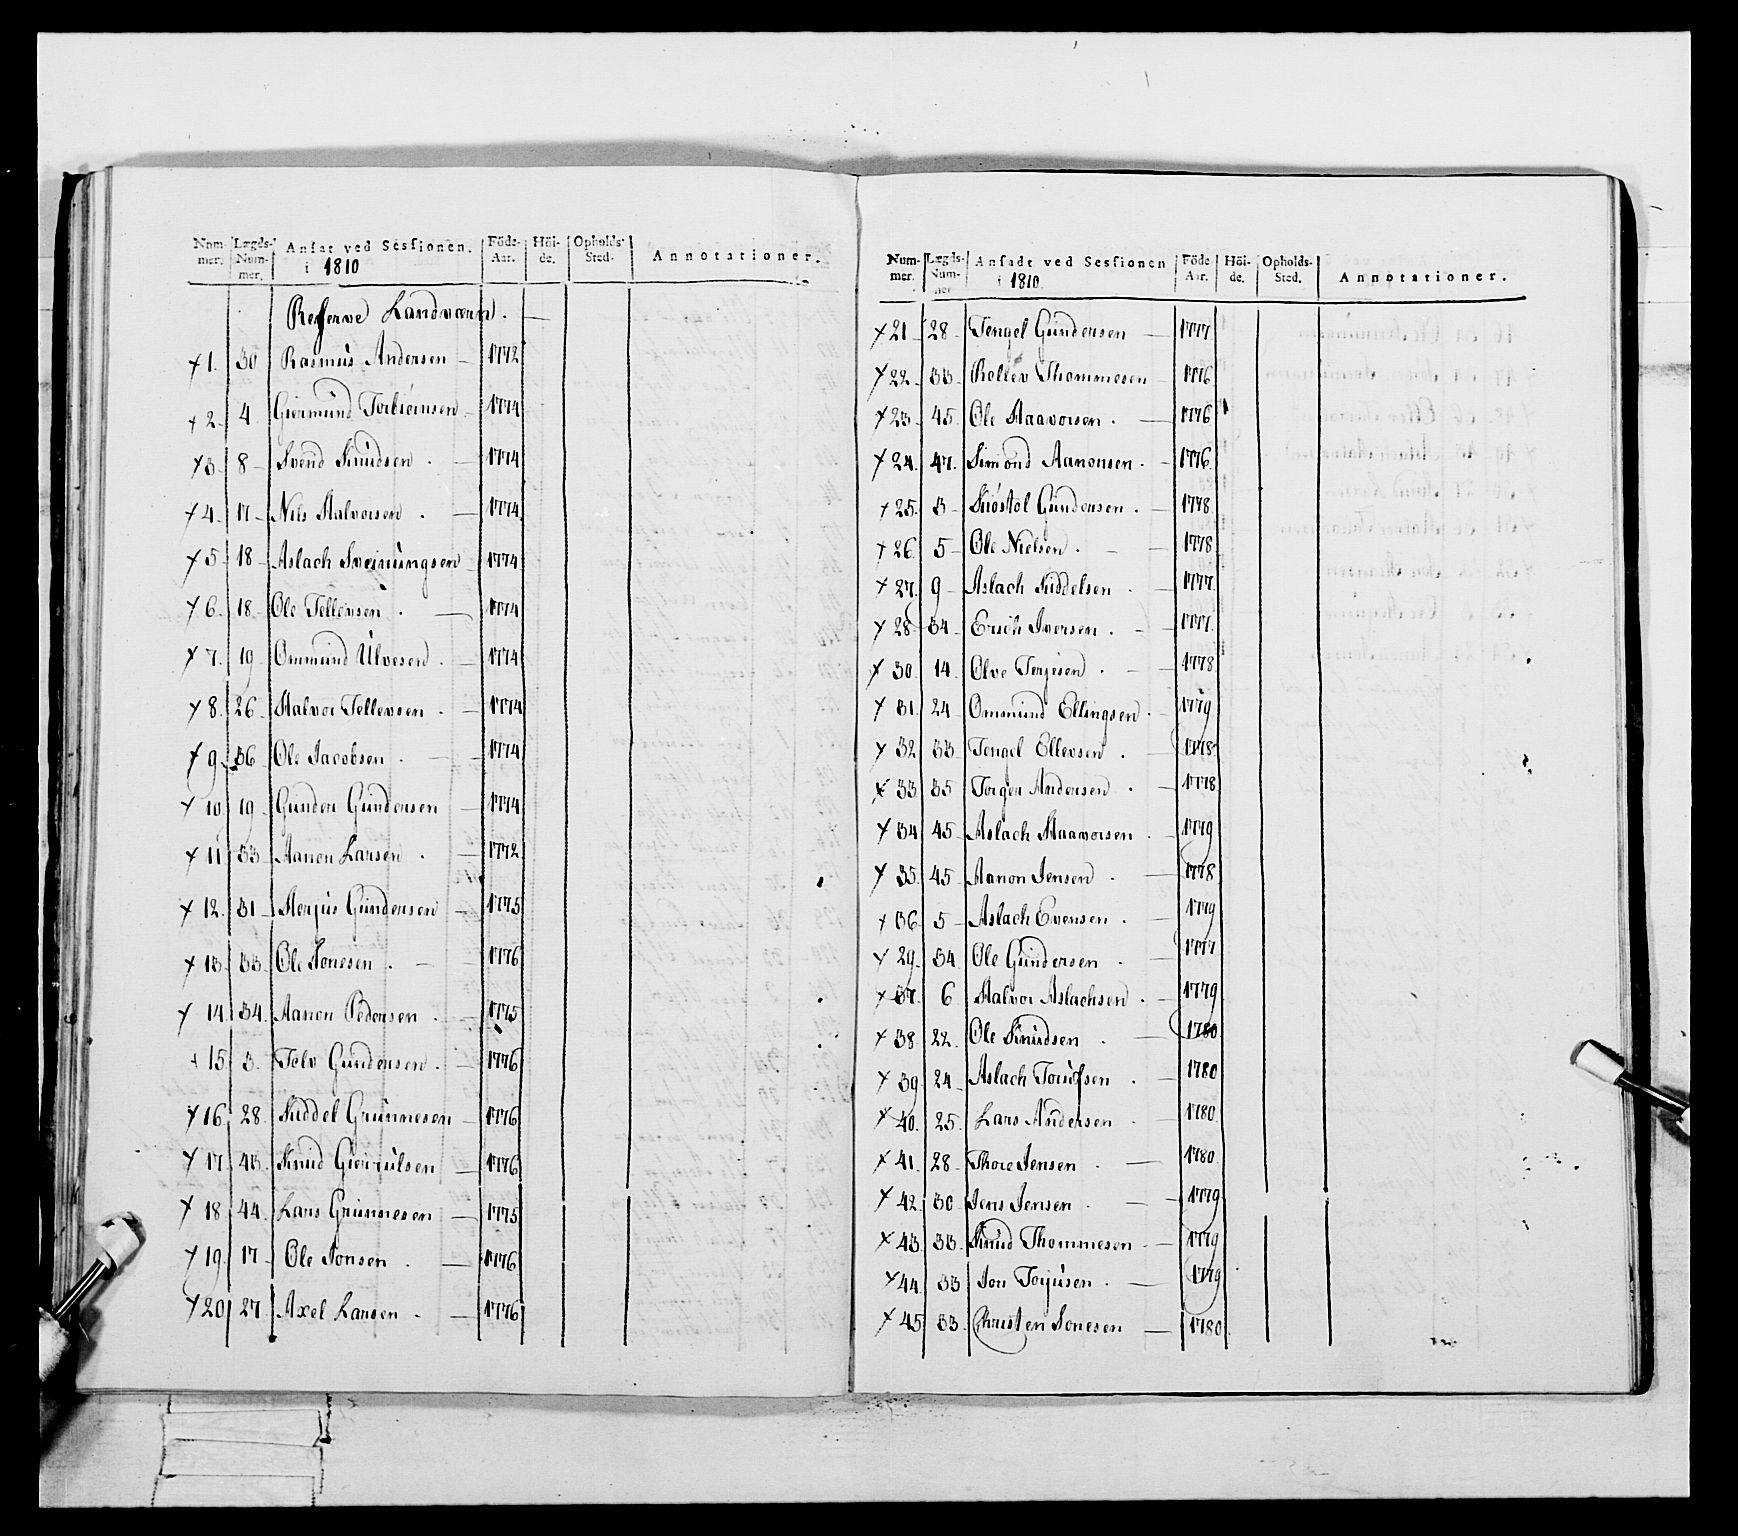 Num- Lægds- Ansat ved Sessionen. Föde- Höi- Opholds- Annotationer.
mer. Num- i 1810 Aar. de. Sted.
mer.
Reserve Landværn.
+ 1. 30 Rasmus Andersen 1772
+ 2. 4 Giermund Torbiörnsen 1774
+ 3 8 Svend Knudsen 1774
+ 4 17 Nils Halvorsen 1774
+ 5 18 Aslach Sveinungsen 1774
+ 6 18 Ole Tellevsen 1774
+ 7. 19 Ommund Ulvesen 1774
+ 8. 26 Halvor Tellevsen 1774
+ 9 36 Ole Jacobsen 1774
+ 10 19 Gunder Gundersen 1774
+ 11 33 Aanon Larsen 1772
+ 12. 31 Herjus Gundersen 1775
+ 13 33 Ole Jonesen 1776
+ 14 34 Aanon Pedersen 1775
+ 15 3. Telv Gundersen 1776
+ 16 28 Kiddel Grunnesen 1776
+ 17. 43 Knud Gierrulsen 1776
+ 18 44 Lars Grunnesen 1775
+ 19. 17 Ole Jonsen 1776
+ 20 27 Axel Larsen 1776
Num- Lægds- Ansadt ved Sessionen Föde Höi- Opholds- Annotationer.
mer. Num- i 1810 Aar. de. Sted.
mer
+ 21 28 Tengel Gundersen 1777
+ 22 33 Rollev Thommesen 1776
+ 23 45 Ole Haavorsen 1776
+ 24. 47. Simond Aanonsen 1776
+ 25. 3 Kiöstol Gundersen 1778
+ 26 5 Ole Nielsen 1778
+ 27. 9 Aslach Kiddelsen 1777
+ 28 34 Erich Iversen 1777
+ 30 14 Olve Terjesen 1778
+ 31. 24 Ommund Ellingsen 1779
+ 32 33 Tengel Ellevsen 1778
+ 33 35 Torger Andersen 1778
+ 34 45 Aslach Haavorsen 1779
+ 35. 45 Aanon Jensen 1778
+ 36 5 Aslach Evensen 1779
+ 29. 34 Ole Gundersen 1777
+ 37. 6 Halvor Aslachsen 1779
+ 38 22. Ole Knudsen 1780
+ 39 24 Aslach Torufsen 1780
+ 40. 25. Lars Andersen 1780
+ 41. 28 Thore Jensen 1780
+ 42. 30 Jens Jensen 1779
+ 43. 33. Knud Thommesen 1779
+ 44. 33 Jon Torjusen 1779
+ 45 33 Christen Jonesen 1780